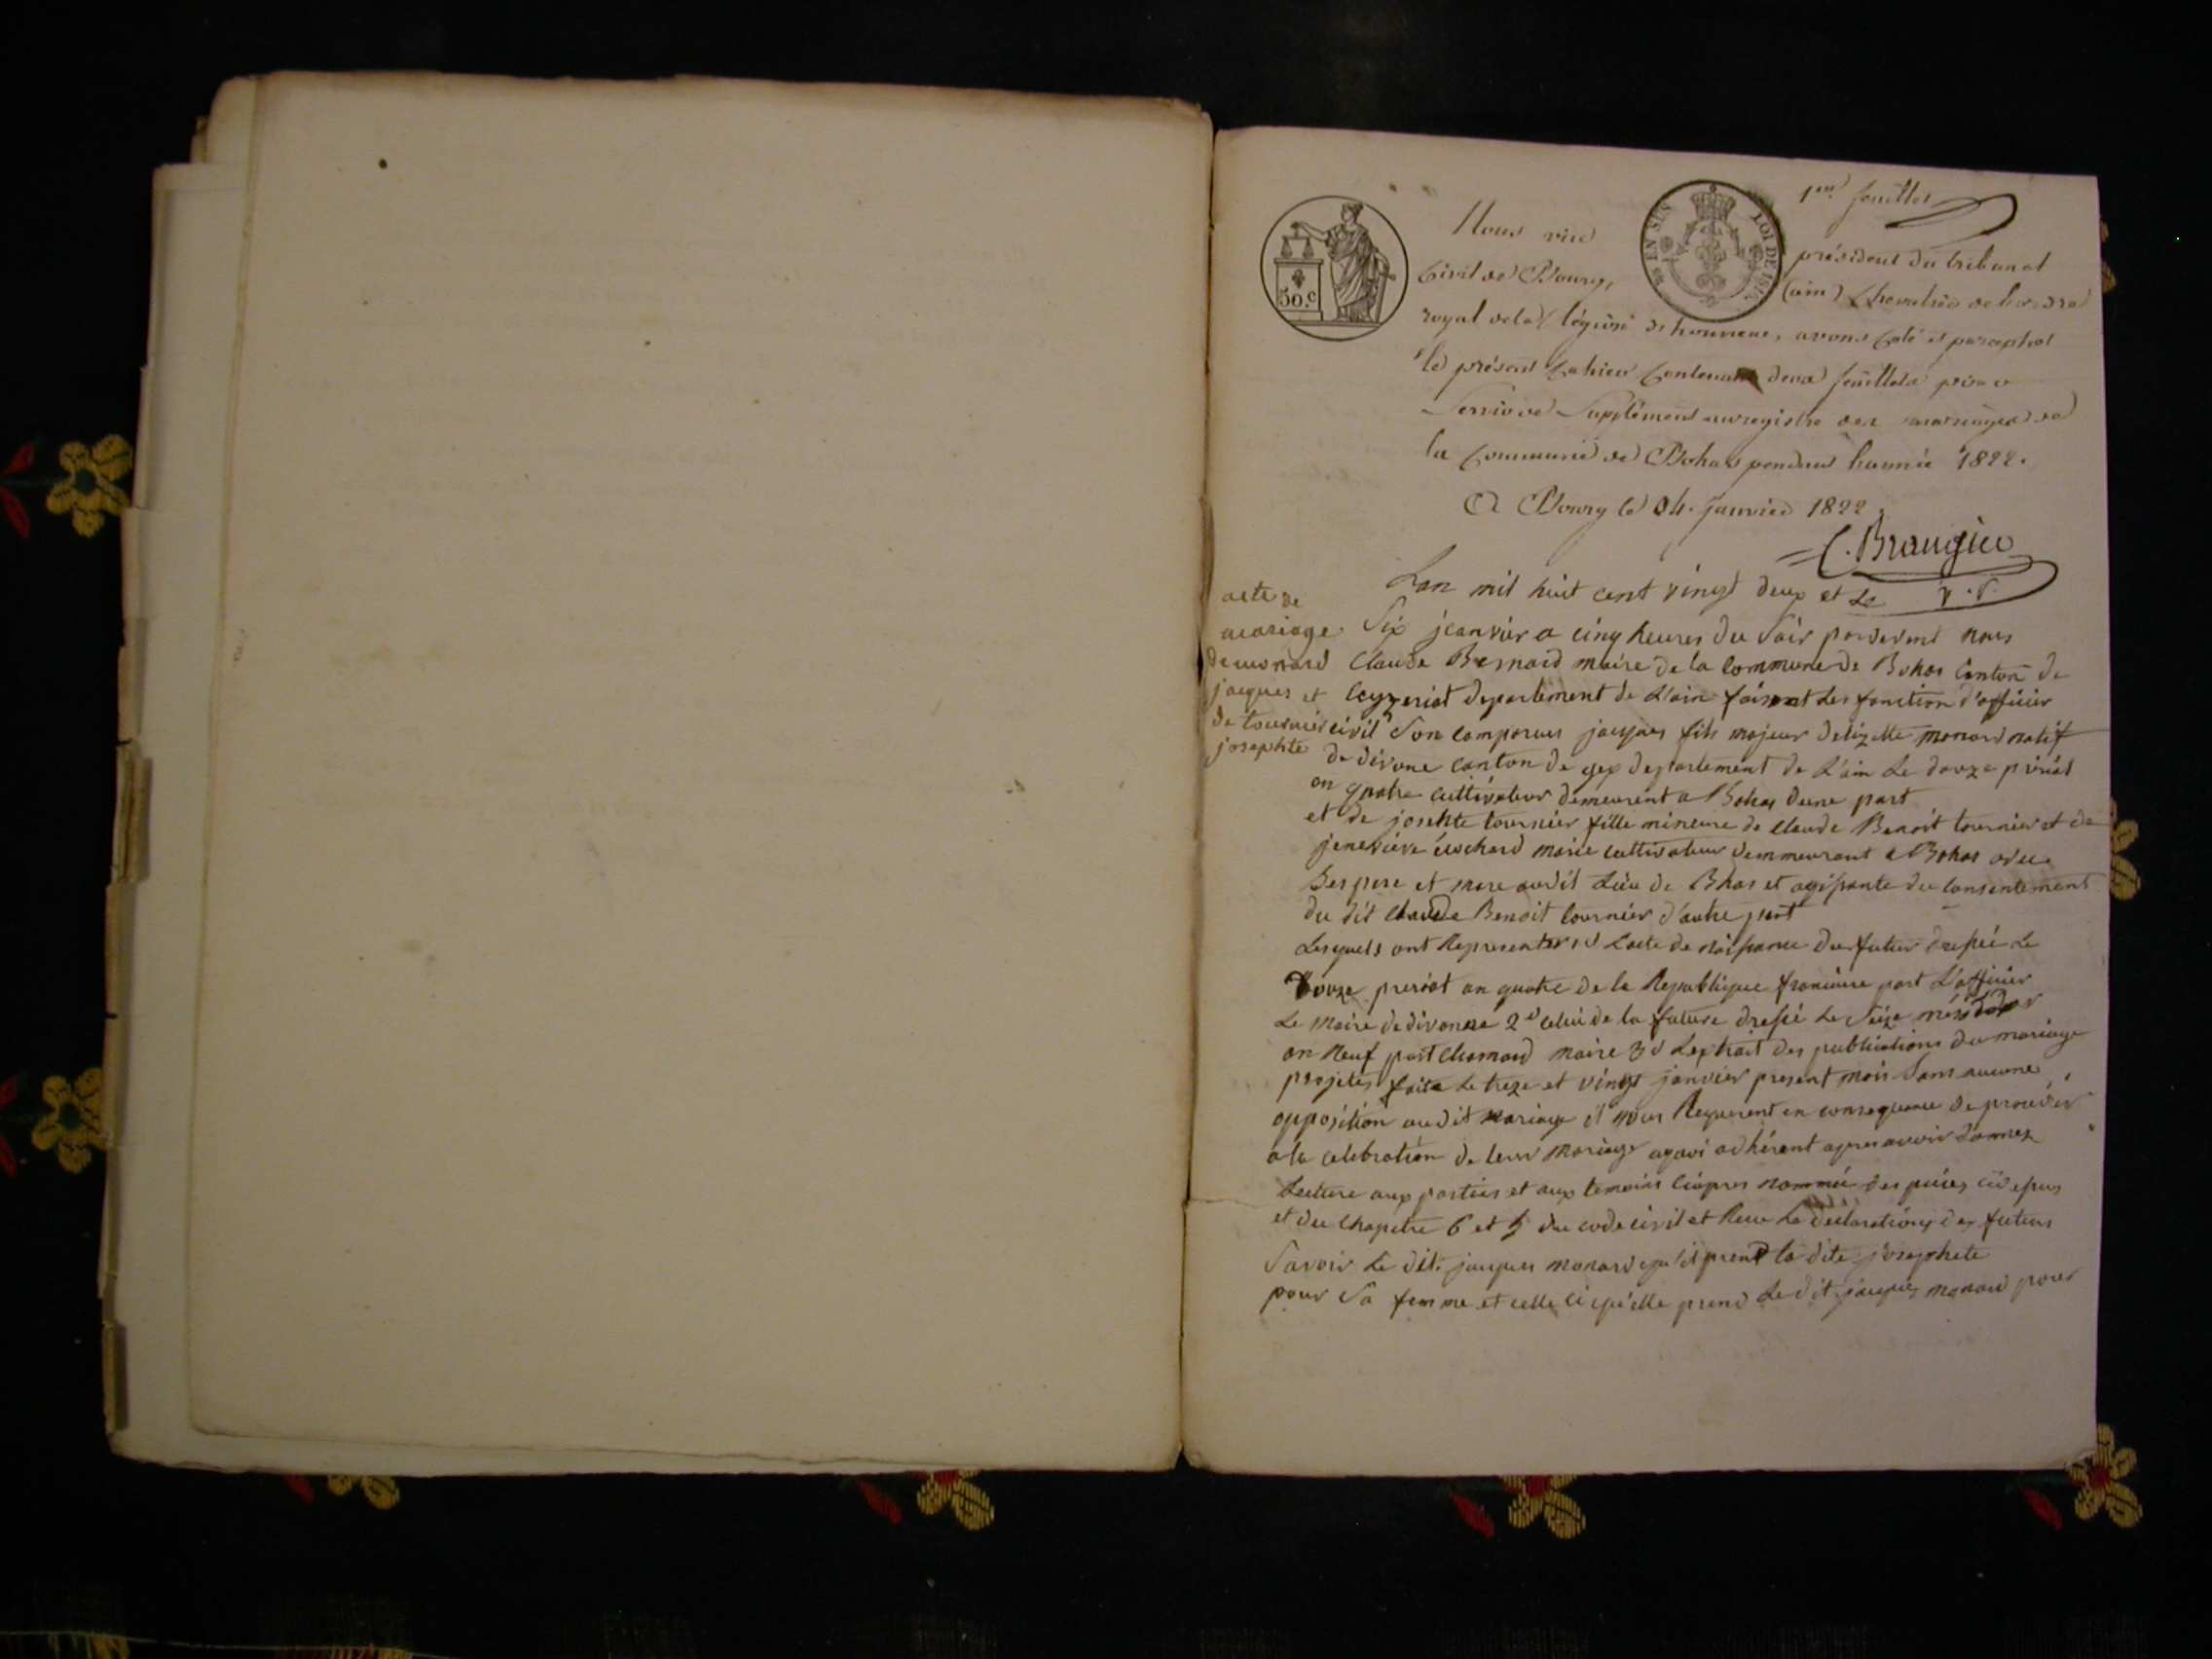 1er feuillet
50.c
EN SUS
LOI DE 1816
Nous vice président du tribunal
Civil de Bourg, (ain) Chevalier de l'ordre
royal de la légion d'honneur, avons coté et paraphé
le présent Cahier Contenant deux feuillets pour
Servir de Supplément au registre des mariages de
la Commune de Bohas pendant l'année 1822.
A Bourg le 24 janvier 1822
v.p.
acte de
mariage
de monard
jacques et
de tournier
josephte
Lan mil huit cent vingt deux et Le
Six jeanvier a cinq heures du Soir pardevent nous
Claude Bernard maire de la Commune de Bohas Canton de
Ceyzeriat departement de L'ain faisant Les fonction d'officier
civil Son comparus jacques fils majeur delizette monard natif
de divone canton de gex departement de L'ain Le douze prérial
an quatre cultivateur demeurent a Bohas dune part
et de josehte tournier fille mineure de Claude Benoit tournier et de
jenevieve cultivateur demmeurant a Bohas avec
Ses pere et mere audit Lieu de Bhas et agissante du consentement
du dit Claude Benoit tournier d'autre part
Lesquels ont Representer Lacte de naissance du futur dressé Le
Douze prerial an quatre de la Republique francaise part L'officier
Le maire de divonne 2d celui de la future dressé Le Seize méssidor
an Neuf part maire 3d Lextrait des publications du mariage
projetés faite Le treze et vingt janvier present mois Sans aucune
opposition audit mariage et nous Requerent en consequence de
a la celebration de leur mariage adhérent apres avoir donnez
Lecture aux parties et aux temoins ciapres nommée des pieces
et du chapitre 6 et 5 du code civil et Recu La declarations des futurs
Savoir Le dit jacques monard qu'il prend la dite josephete
pour Sa femme et celle ci qu'elle prend Le dit jacques monard pour